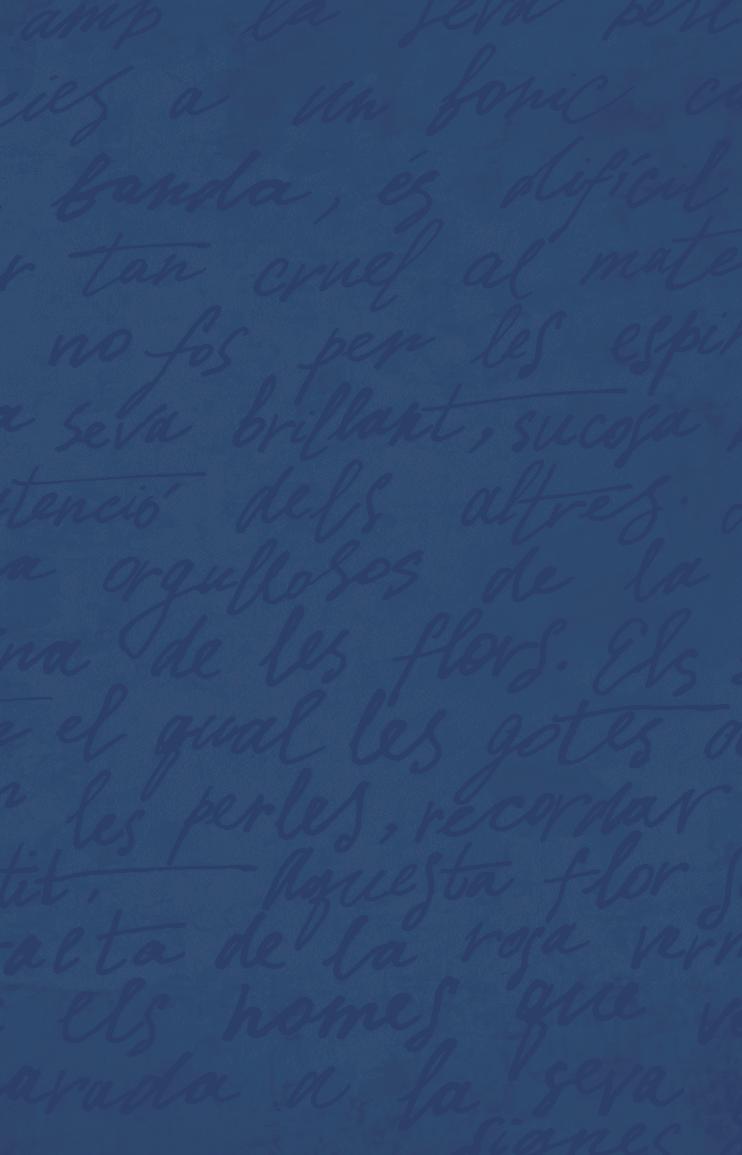 amp la seva perc
cies a un fonic co
banda, és difícil
r tan cruel al mate
no fos per les espin
a seva brillant, sucosa
atenció dels altres.
a orgullosos de la
na de les flors. Els
e el qual les gotes d
les perles, recordar
tit, Aquesta flor s
ralta de la rosa verm
els homes que v
arada a la seva
signes